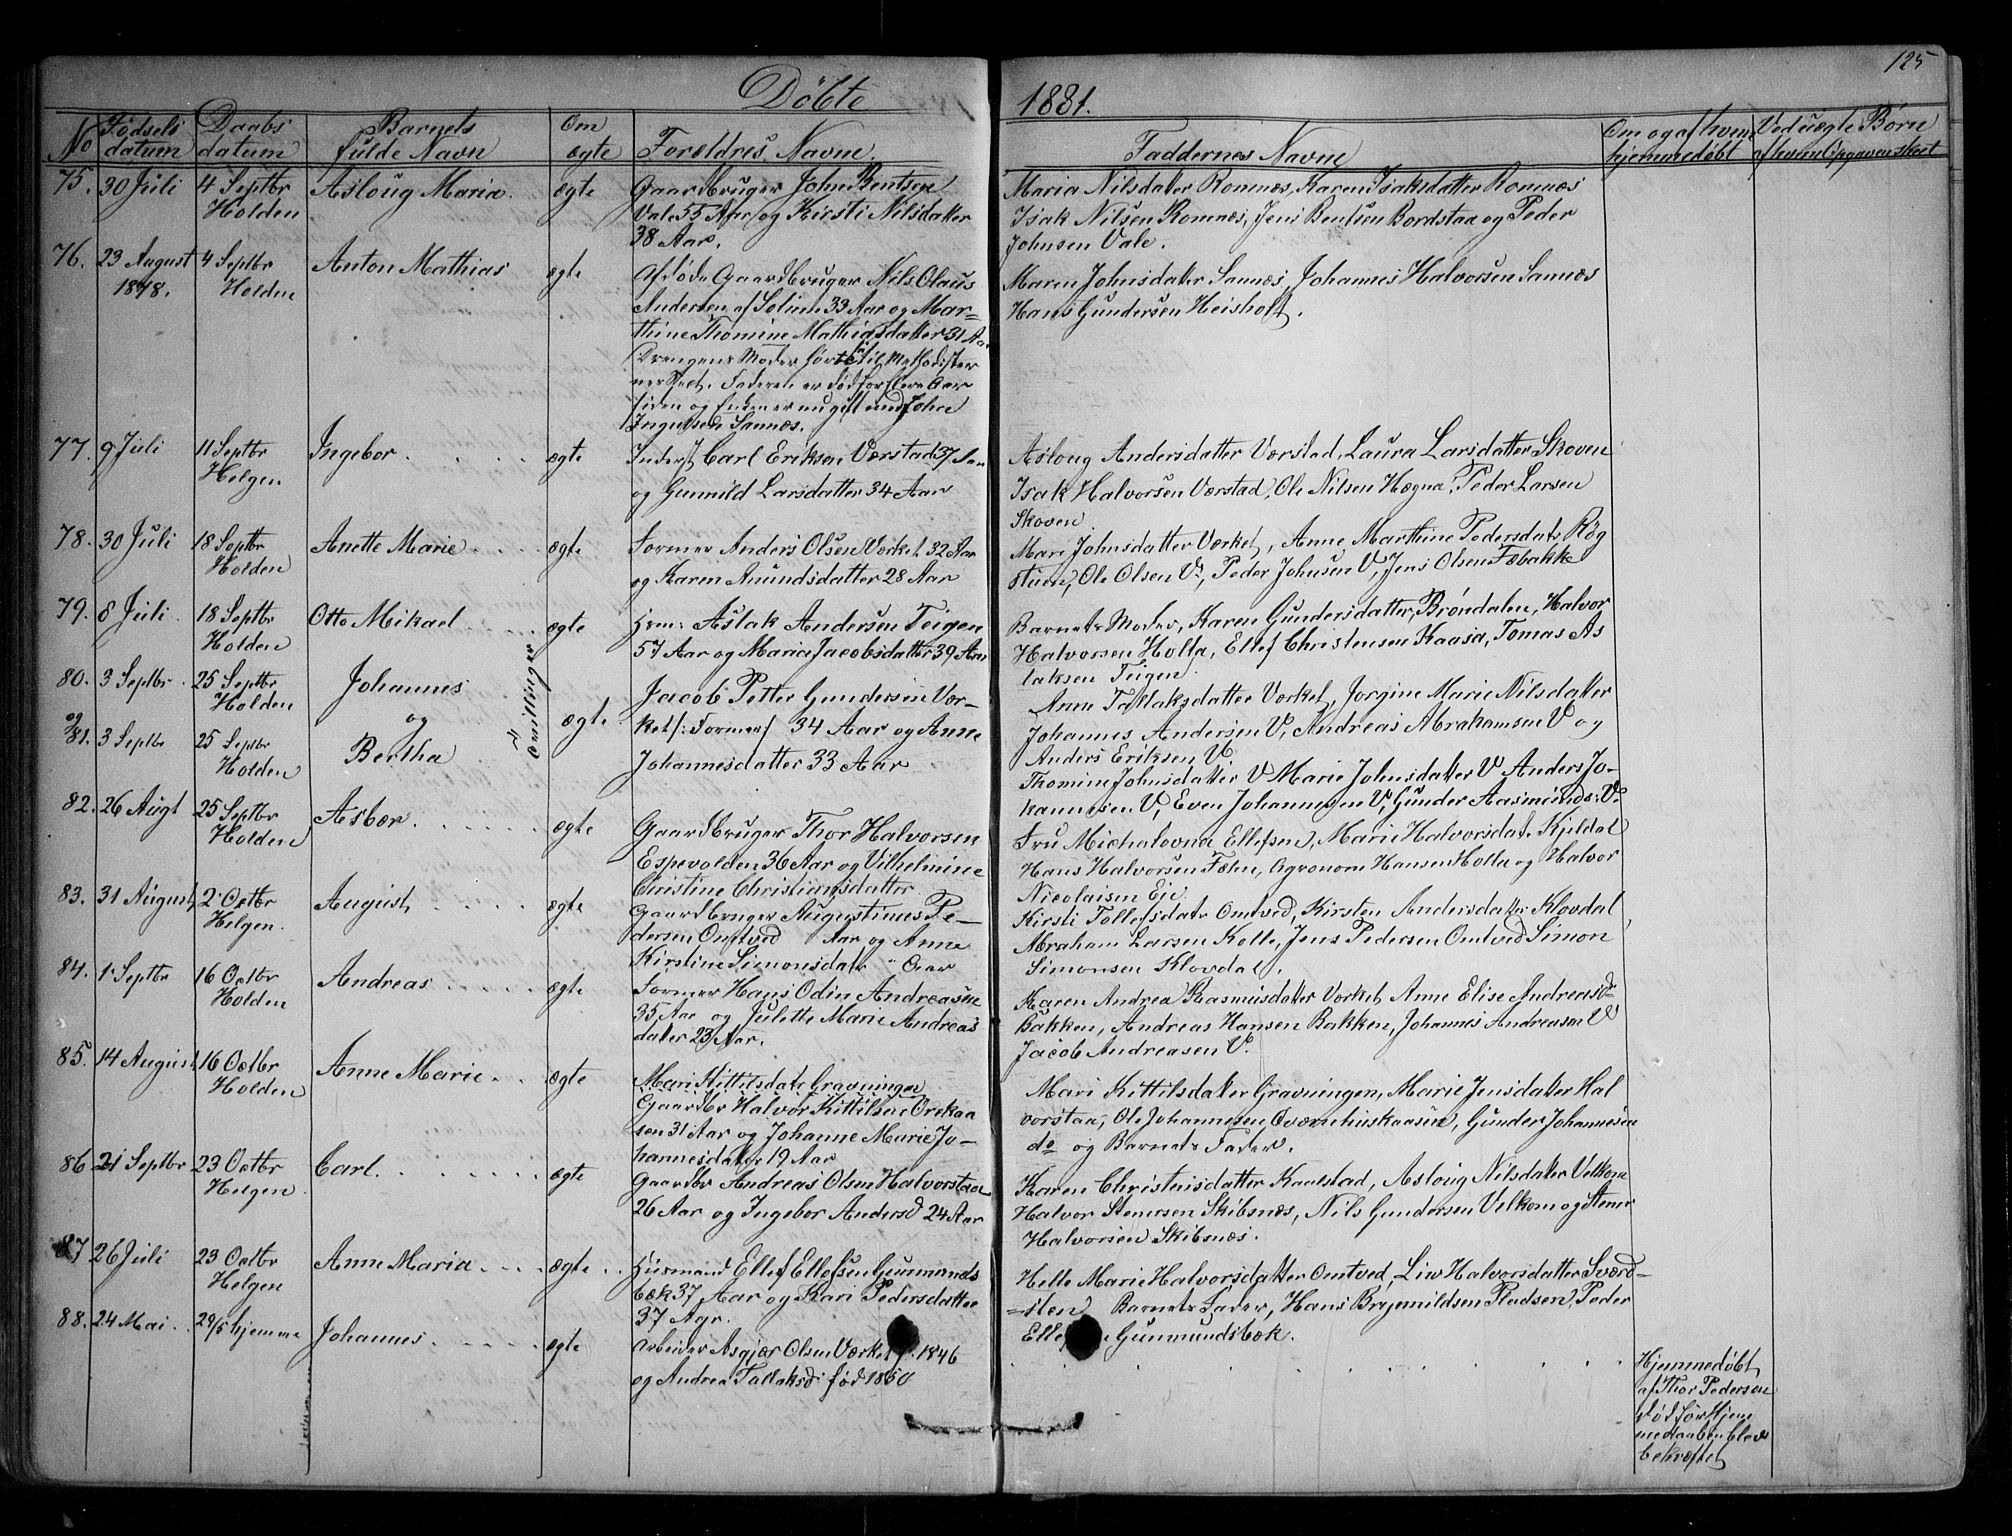 125
Døbte 1881.
No Fødsels datum Daabs datum Barnets fulde Navn Om ægte Forældres Navne Faddernes Navne Om og af hvem hjemmedøbt Ved uægte Børn af hvem Opgaven skeet
75. 30 Juli 4 Septbr Holden Asloug Maria. ægte Gaardbruger John Bentsen
Vale 55 Aar og Kirsti Nilsdatter
38 Aar.
Maria Nilsdatter Romnæs, Karen Isaksdatter Romnæs
Isak Nilsen Romnæs, Jens Bentsen Bordstaa og Peder
Johnsen Vale.
76. 23 August 1878. 4 Septbr Holden Anton Mathias ægte Afdøde Gaardbruger Nils Olaus
Andersen af Solum 33 Aar og Mar-
thine Thomine Mathiasdatter 31 Aar
Drengens Moder før til Methodister
nes Sect. Faderen er død for flere Aar
siden og Enken er nu gift med John
Ingulsen Sannæs.
Maren Johnsdatter Sannæs, Johannes Halvorsen Sannæs
Hans Gundersen Heisholt.
77. 9 Juli 11 Septbr Helgen Ingebor ægte Inderst Carl Eriksen Værstad 37 Aar
og Gunnild Larsdatter 34 Aar
Asloug Andersdatter Værstad, Laura Larsdatter Skoven
Isak Halvorsen Værstad, Ole Nilsen Hægna, Peder Larsen
Skoven
78. 30 Juli 18 Septbr Holden Anette Marie ægte Former Anders Olsen Værket 32 Aar
og Karen Amundsdatter 28 Aar
Mari Johnsdatter Værket, Anne Marthine Pedersdatr Røg
stuen, Ole Olsen V., Peder Johnsen V, Jens Olsen Febakke
79. 8 Juli 18 Septbr Holden Otto Mikael ægte Hsm: Aslak Andersen Teigen
57 Aar og Maria Jacobsdatter 39 Aar
Barnets Moder, Karen Gundersdatter, Brøndalen, Halvor
Halvorsen Holla, Ellef Christensen Kaasa, Tomas As
laksen Teigen
80. 3 Septbr 25 Septbr Holden Johannes
og
81. 3 Septbr 25 Septbr Holden Bertha
Tvillinger
ægte Jacob Petter Gundersen Vær-
ket /: Former / 34 Aar og Anne
Johannesdatter 33 Aar
Anne Tallaksdatter Værket, Jorgine Marie Nilsdatter
Johannes Andersen V, Andreas Abrahamsen V og
Anders Eriksen V
Thomine Johnsdatter V Marie Johnsdatter V Anders Jo-
hannesen V, Even Johannesen V, Gunder Aasmunds: V.
82. 26 Augt 25 Septbr Holden Asbær. ægte Gaardbruger Thor Halvorsen
Espevolden 36 Aar og Vilhelmine
Cristine Christiansdatter
Fru Michalovna Ellefsen, Marie Halvorsdatr Kjeldal
Hans Halvorsen Fæhn, Agronom Hansen Holla og Halvor
Nicolaisen Eie
83. 31 August 2 Octbr Helgen. August, ægte Gaardbruger Augustinus Pe-
dersen Omtved Aar og Anne
Kirstine Simonsdatr " Aar
Kirsti Tollefsdatr Omtved, Kirsten Andersdatter Klovdal
Abraham Larsen Kolle, Jens Pedersen Omtved Simon
Simonsen Klovdal.
84. 1 Septbr 16 Octbr Holden Andreas ægte Former Hans Odin Andreasen
35 Aar og Julette Marie Andreas
datter 23 Aar.
Karen Andrea Rasmusdatter Værket Anne Elise Andreasdr
Bakken, Andreas Hansen Bakken, Johannes Andreasen V
Jacob Andreasen V.
85. 14 August 16 Octbr Holden Anne Marie ægte Mari Kittilsdatr Gravningen
Gaardbr Halvor Kittilsen Orekaa
sen 31 Aar og Johanne Marie Jo-
hannesdatter 19 Aar
Mari Kittilsdatter Gravningen, Marie Jensdatter Hal
vorstaa, Ole Johannesen Qværnhuskaasen, Gunder Johannesen
do og Barnets Fader.
86 21 Septbr 23 Octbr Helgen Carl. ægte Gaardbr Andreas Olsen Halvorstaa
26 Aar og Ingebor Andersd 24 Aar
Karen Christensdatter Kaalstad, Asloug Nilsdatter Velkom
Halvor Stenersen Skibsnæs, Nils Gundersen Velkom og Stener
Halvorsen Skibsnæs.
87 26 Juli 23 Octbr Helgen Anne Maria ægte Husmand Ellef Ellefsen Gunmunds
bæk 37 Aar og Kari Pedersdatter
37 Aar.
Helle Marie Halvorsdatter Omtved, Liw Halvorsdatter Sværd-
-sten Barnets Fader, Hans Brynnildsen Pladsen, Peder
Gunmundsbæk.
88. 24 Mai 29/5 hjemme Johannes ægte Arbeider Asgjær Olsen Værket f. 1846
og Andrea Tallaksd: født 1850
Hjemmedøbt
af Thor Pedersen
død før Hjem
medaaben blev
bekræftet